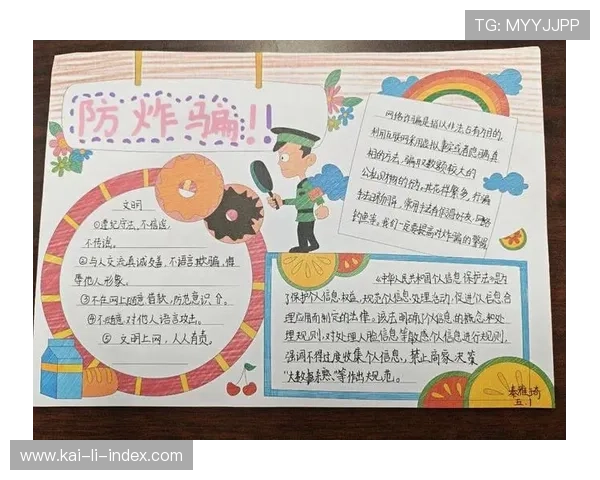 TG: MYYJJPP
防炸骗!!
网络诈骗是指以非法占有为目的,
利用互联网采用虚拟事实或者隐瞒真
相的方法,骗取数额较大的
公私财物的行为。其花样繁多,行骗
手法
我们一定要提高对炸骗的警惕
文明
①遵纪守法,不信谣,
不传谣。
②与人交流真诚友善,不语言欺骗,侮
辱他人形象。
③不在网上随意
防范意识
④不随意对他人语言攻击。
⑤ 文明上网,人人有责。
《中华人民共和国个人信息保护法》是为
了保护个人信息权益,规范个人信息处理活动,促进个人信息合
理应用而制定的法律。该法明确了个人信息的概念和处
理规则,对处理人脸信息等敏感个人信息进行规制,
强调不得过度收集个人信息,禁止商家
"大数据杀熟"等作出规范。
秦雅琦
五.1
www.kai-li-index.com